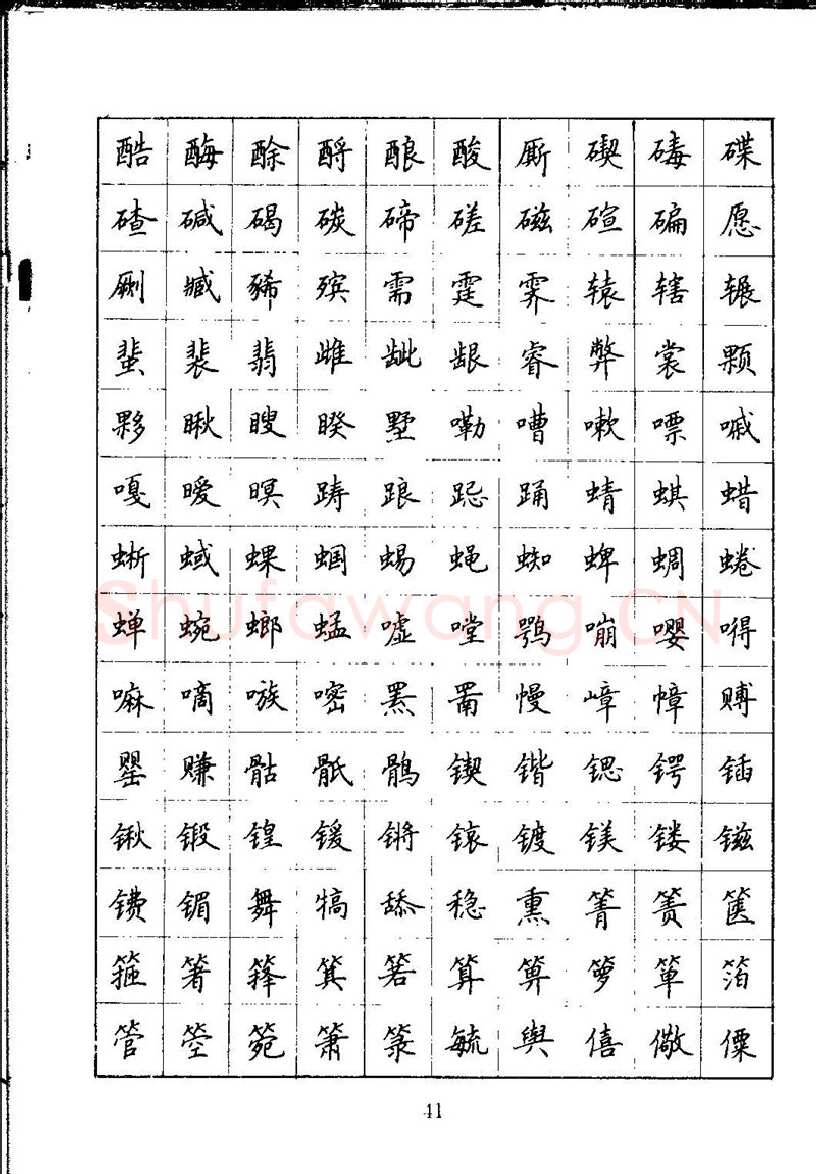 酷 酶 酴 酹 酿 酸 厮 碶 碡 碟
碴 碱 碣 碳 碲 磋 磁 碹 碥 愿
劂 臧 豨 殡 需 霆 霁 辕 辖 辗
蜚 裴 翡 雌 龇 龈 睿 弊 裳 颗
夥 瞅 瞍 睽 墅 嘞 嘈 嗽 嘌 嘁
嘎 暧 暝 踌 踉 跽 踊 蜻 蜞 蜡
蜥 蜮 蜾 蝈 蜴 蝇 蜘 蜱 蜩 蜷
蝉 蜿 螂 蜢 嘘 嘡 鹗 嘣 嘤 嘚
嘛 嘀 嗾 嘧 罴 罱 幔 嶂 幛 赙
罂 赚 骷 骶 鹘 锲 锴 锶 锷 锸
锹 锻 锽 锾 锵 镀 镁 镂 镃
镄 镅 舞 犒 舔 稳 熏 箐 箦 箧
箍 箸 箨 箕 箬 算 箅 箩 箪 箔
管 箜 箢 箫 箓 毓 舆 僖 儆 僳
Shufawang.CN
41